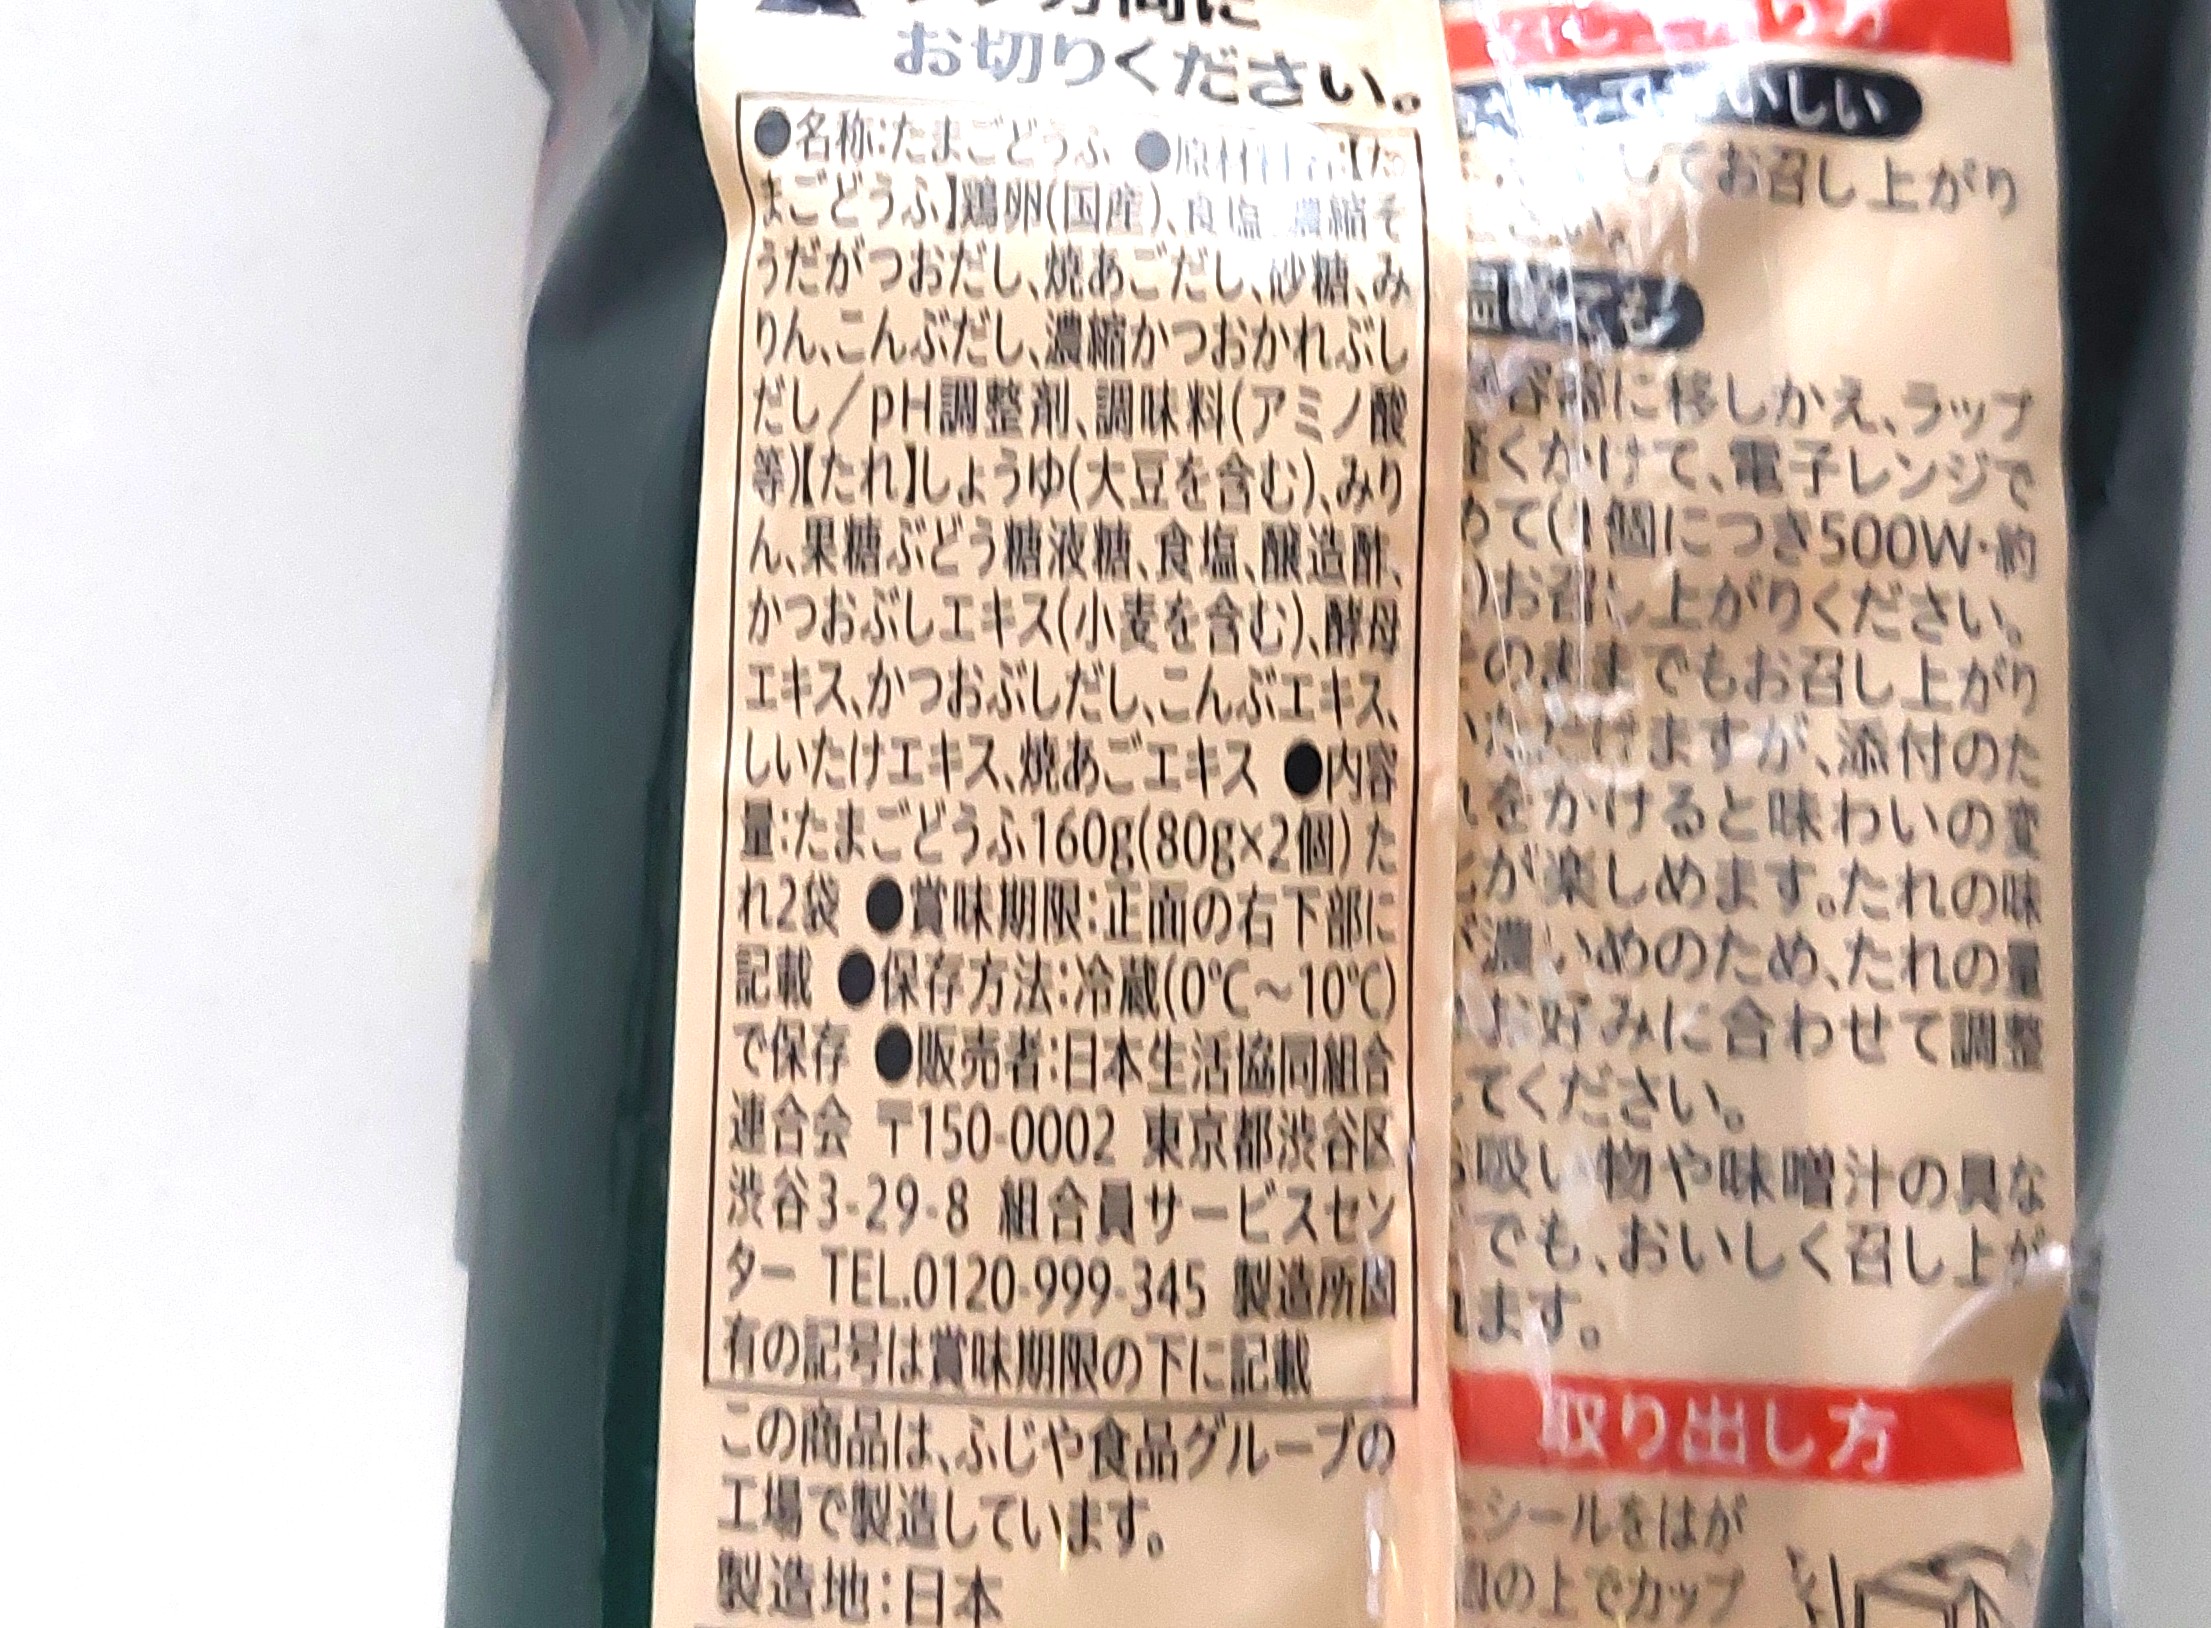 お切りください。
●名称:たまごどうふ ●原材料名:【た
まごどうふ】鶏卵(国産)、食塩、濃縮そ
うだがつおだし、焼あごだし、砂糖、み
りん、こんぶだし、濃縮かつおかれぶし
だし/pH調整剤、調味料(アミノ酸
等)【たれ】しょうゆ(大豆を含む)、みり
ん、果糖ぶどう糖液糖、食塩、醸造酢、
かつおぶしエキス(小麦を含む)、酵母
エキス、かつおぶしだし、こんぶエキス、
しいたけエキス、焼あごエキス ●内容
量:たまごどうふ160g(80g×2個) た
れ2袋 ●賞味期限:正面の右下部に
記載 ●保存方法:冷蔵(0℃~10℃)
で保存 ●販売者:日本生活協同組合
連合会 〒150-0002 東京都渋谷区
渋谷3-29-8 組合員サービスセン
ター TEL.0120-999-345 製造所固
有の記号は賞味期限の下に記載
この商品は、ふじや食品グループの
工場で製造しています。
製造地:日本
いしい
してお召し上がり
容器に移しかえ、ラップ
くかけて、電子レンジで
て(1個につき500W・約
)お召し上がりください。
のままでもお召し上がり
いただけますが、添付のた
をかけると味わいの変
が楽しめます。たれの味
濃いめのため、たれの量
お好みに合わせて調整
てください。
吸い物や味噌汁の具な
でも、おいしく召し上が
ます。
取り出し方
シールをはが
の上でカップ